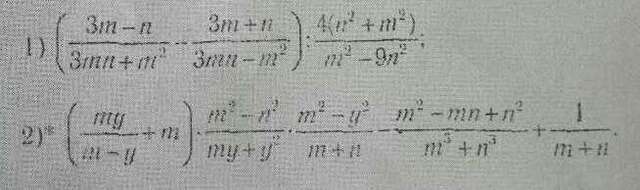 1) ( (3m – n)/(3mn + m²) – (3m + n)/(3mn – m²) ) : 4(n² + m²)/(m² – 9n²);
2)* ( my/(m – y) + m ) · (m² – n²)/(my + y²) · (m² – y²)/(m + n) – (m² – mn + n²)/(m³ + n³) + 1/(m + n).